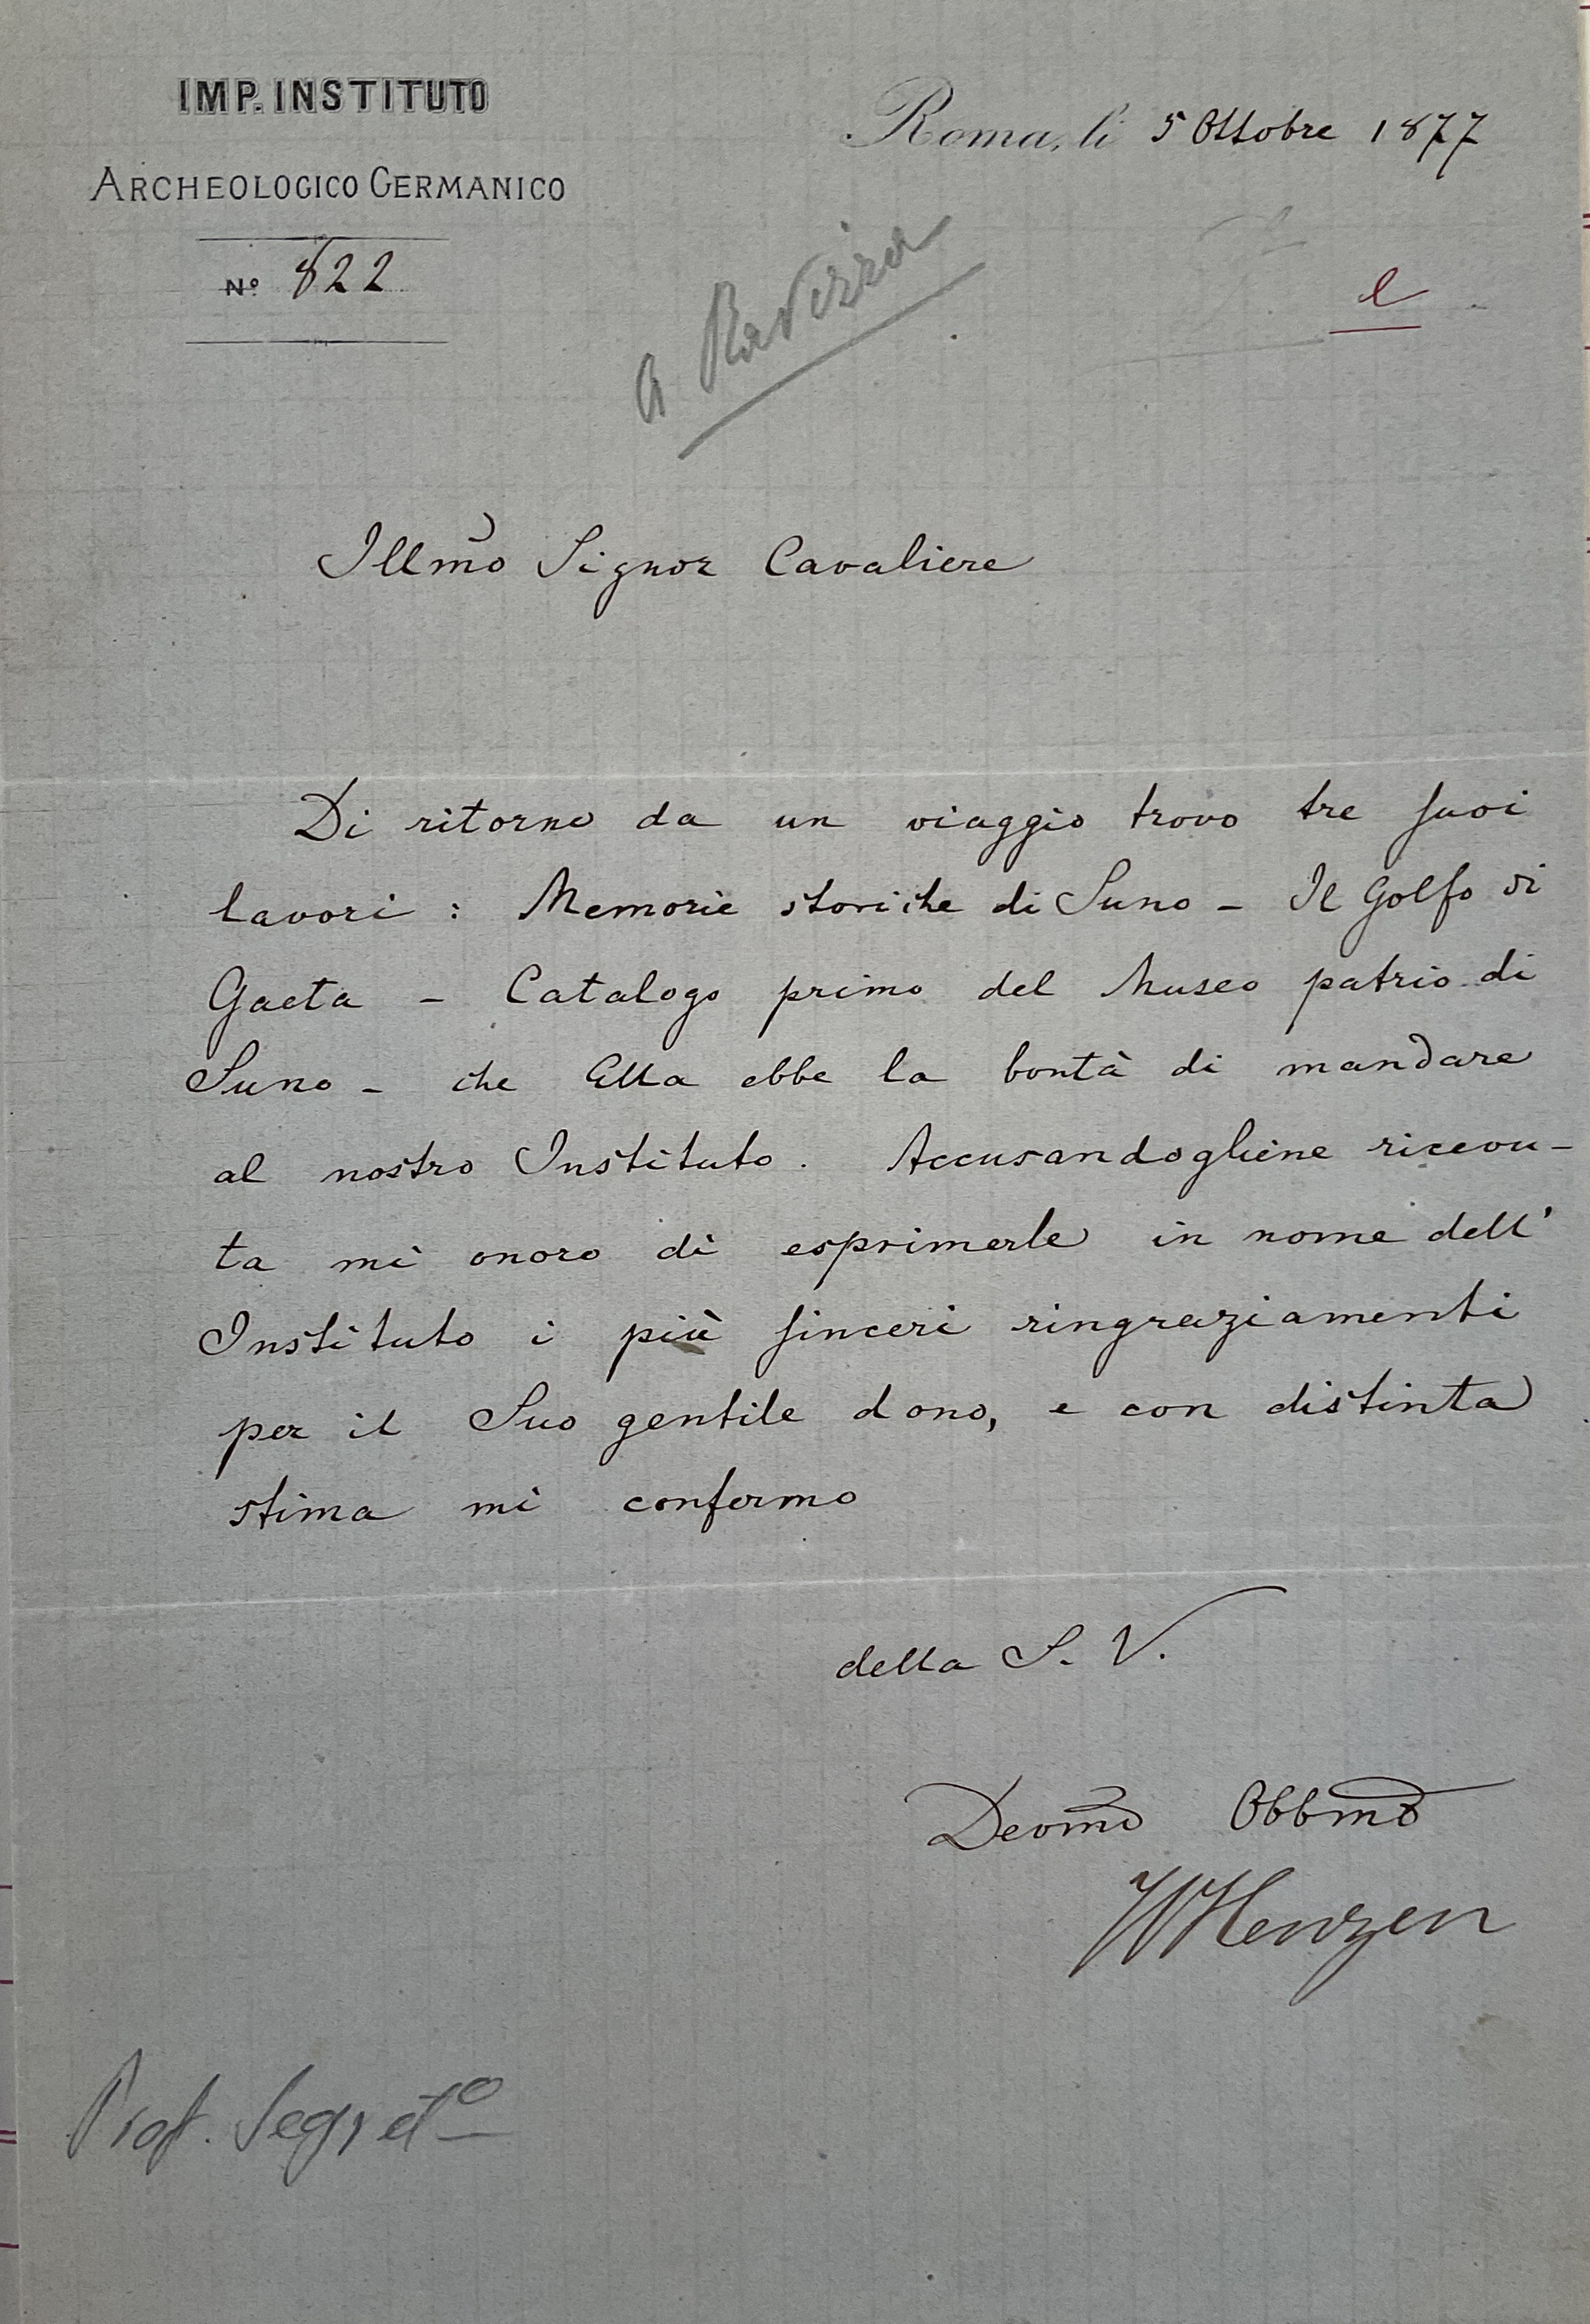 IMP. INSTITUTO
ARCHEOLOGICO GERMANICO
Nº 822
Roma, li 5 Ottobre 1877
a Ravizza
Illmo Signor Cavaliere
Di ritorno da un viaggio trovo tre suoi
lavori : Memorie storiche di Suno - Il Golfo di
Gaeta - Catalogo primo del Museo patrio di
Suno - che Ella ebbe la bontà di mandare
al nostro Instituto. Accusandogliene ricevu-
ta mi onoro di esprimerle in nome dell'
Instituto i più sinceri ringraziamenti
per il Suo gentile dono, e con distinta
stima mi confermo
della S. V.
Devmo Obbmo
WHenzen
Prof. Segretº